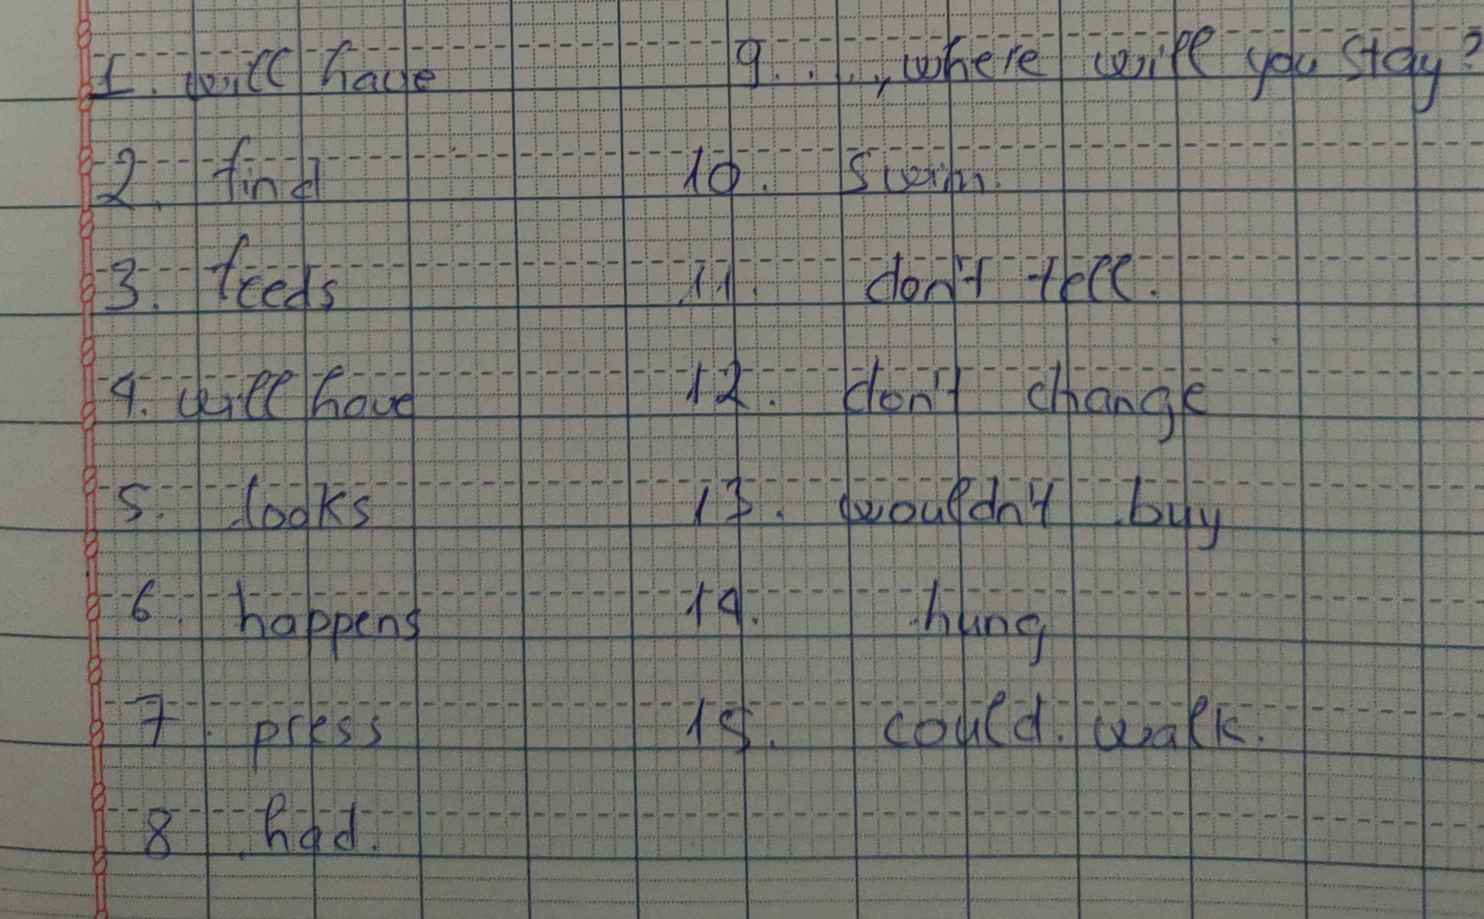 1. will have
2. find
3. feeds
4. will have
5. looks
6. happens
7. press
8. had.
9. ..., where will you stay?
10. swim.
11. don't tell.
12. don't change
13. wouldn't buy
14. hung
15. could walk.